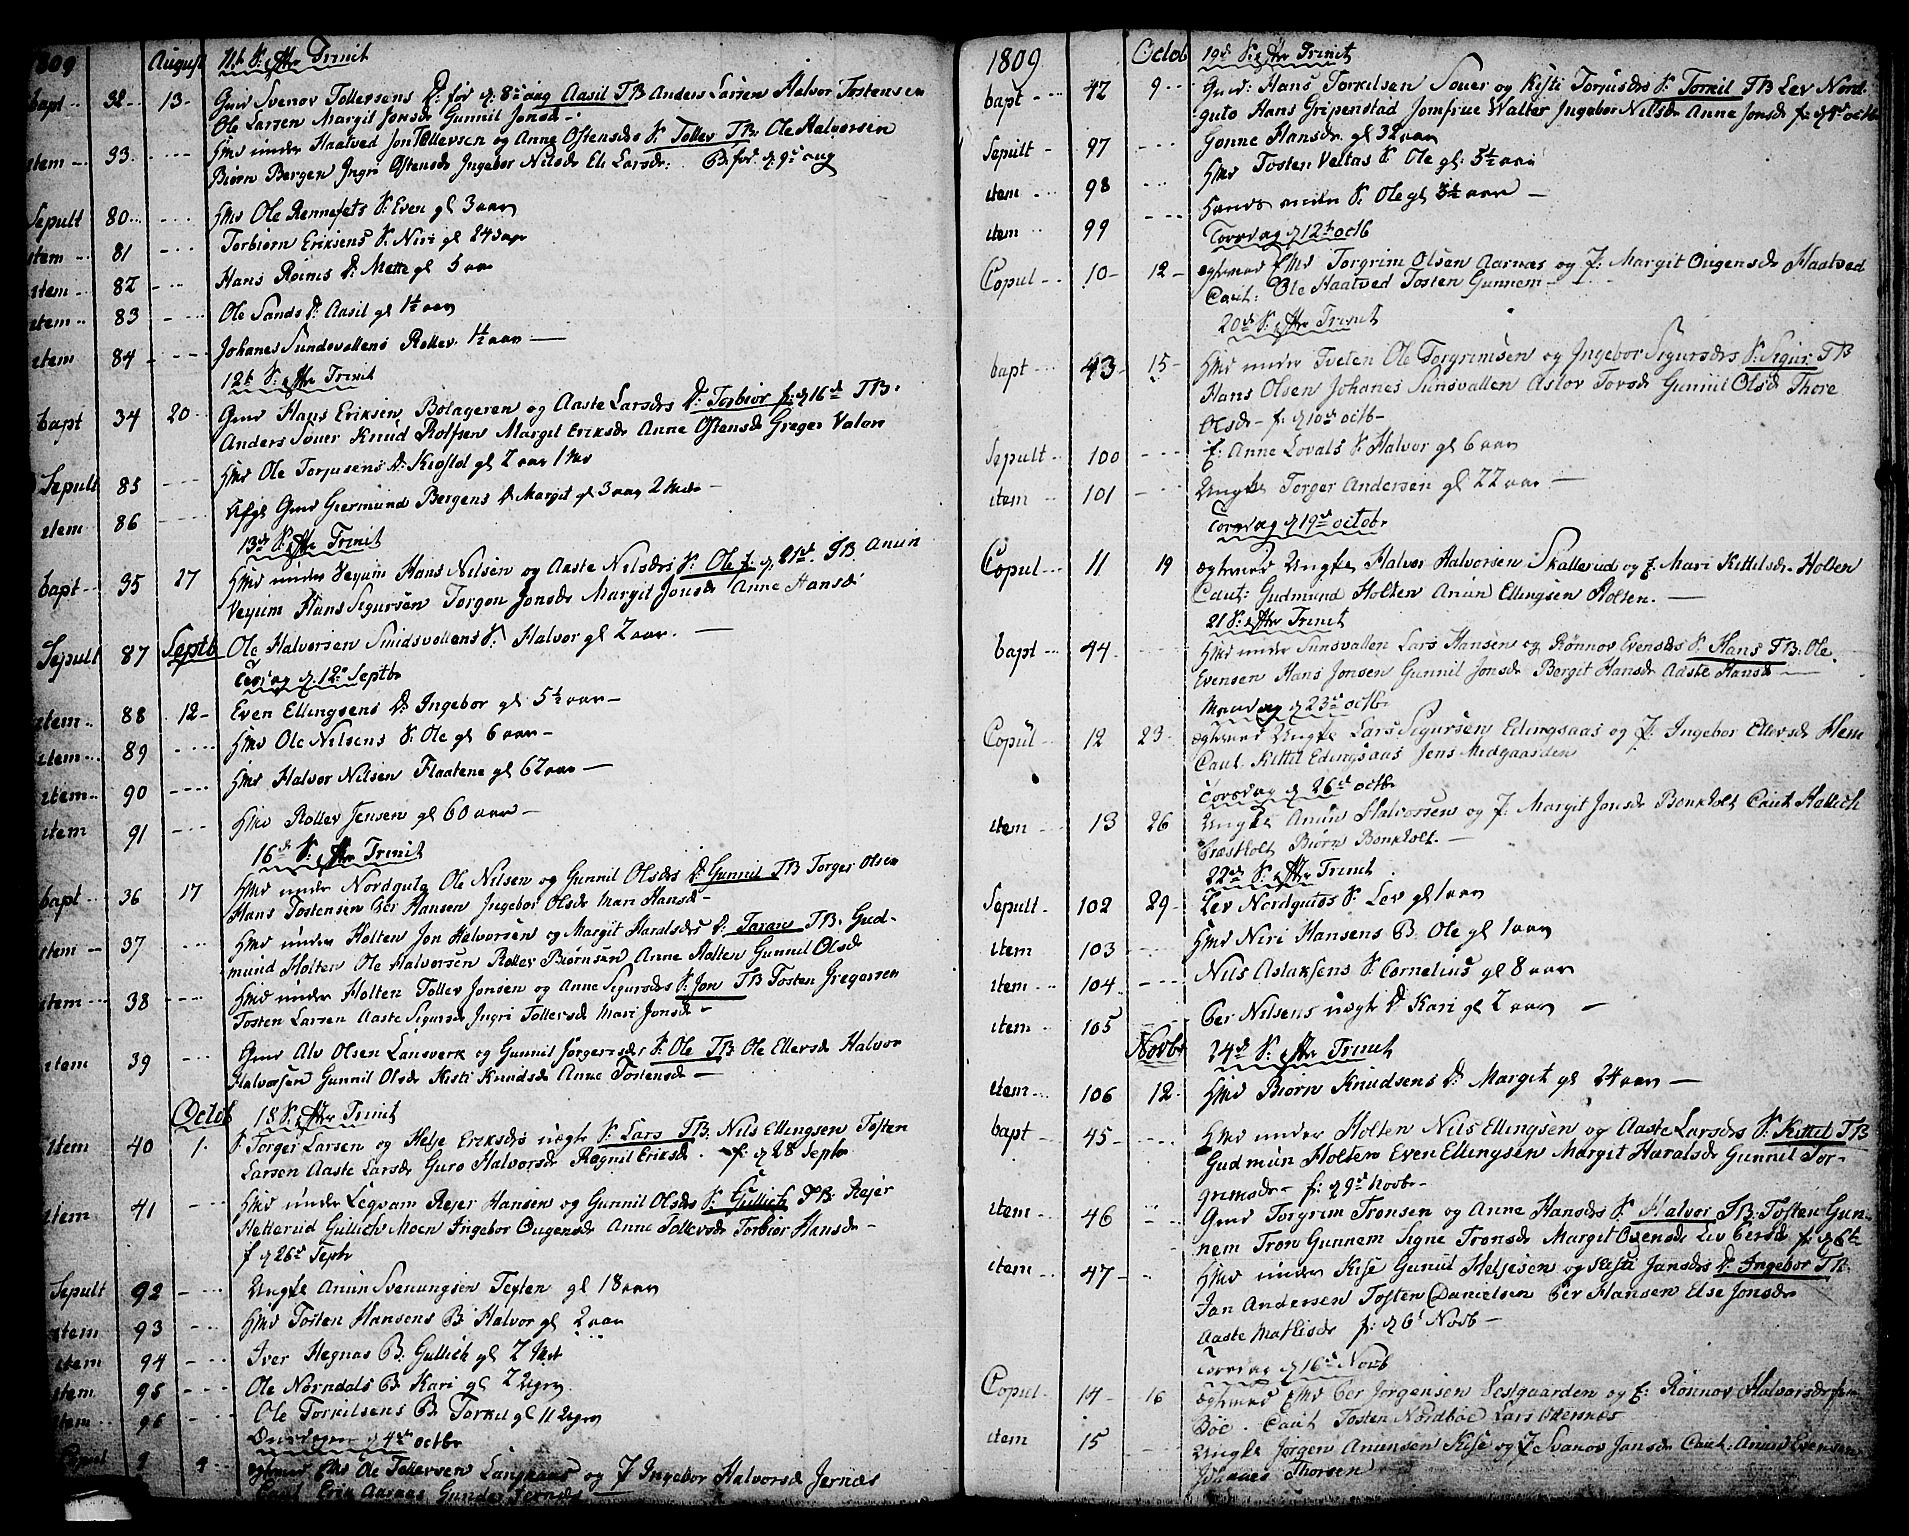 1809 August 11te S: efter Trinit
bapt 32 13 Gmd Svenov Tollefsens D: før d: 8de aug Aasil TB Anders Larsen Halvor Tostensen
Ole Larsen Margit Jonsd Gunnil Jonsd
item 33 Hmd under Haatved Jon Tollevsen og Anne Ostensdr S. Tollev TB. Ole Halvorsen
Biørn Bergen Ingri Ostensdr Ingebor Nilsdr Eli Larsdr: B. før d: 9de aug
Sepult 80 Hmd Ole Rennefets S. Even gl 3 aar
item 81 Torbiørn Eriksens S. Niri gl 24 dage
item 82 Hans Roimis D. Mette gl 5 aar
item 83 Ole Sands D. Aasil gl 1½ aar
item 84 Johanes Sundsvallens Rollev 1½ aar
12te S. efter Trinit
bapt 34 20 Gmd Hans Eriksen Bolageren og Aaste Larsdrs D: Torbior f: d 16de TB:
Anders Souer Knud Rolfsen Margit Eriksdr Anne Ostensdr Greger Valon
Sepult 85 Hmd Ole Torjusens D: Kiostol gl 2 aar 1 Md
item 86 Afgl Gmd Giermund Bergens D. Margit gl 3 aar 2 Mdr
13de S. efter Trinit
bapt 35 27 Hmd under Veyum Hans Nilsen og Aaste Nilsdrs S. Ole f. d. 21de. TB Anun
Veyum Hans Sigursen Torgon Jonsdr Margit Jonsdr Anne Hansd
Sepult 87 Septb Ole Halvorsen Smidsvollens S. Halvor gl 2 aar.
Tirsdag d. 12te Septbr
item 88 12 Even Ellingsens D. Ingebor gl 5½ aar
item 89 Hmd Ole Nilsens S. Ole gl 6 aar
item 90 Hmd Halvor Nilsen Flaatene gl 62 aar
item 91 Hmd Rollev Jensen gl 60 aar
16de S. efter Trinit
bapt 36 17 Hmd under Nordguto Ole Nilsen og Gunnil Olsdrs D. Gunnil TB Torger Olsen
Hans Tostensen Per Hansen Ingebor Olsdr Mari Hansd
item 37 Hmd under Holten Jon Halvorsen og Margit Haralsdrs D. Taran TB. Gud-
mund Holten Ole Halvorsen Rollev Biørnsen Anne Holten Gunnil Olsdr
item 38 Hmd under Holten Tollev Jonsen og Anne Sigursdrs S. Jon TB Tosten Gregersen
Tosten Larsen Aaste Sigursdr Ingri Tollefsdr Mari Jonsdr
item 39 Gmd Alv Olsen Lansverk og Gunnil Jørgensdrs S. Ole TB Ole Ellevsdr Halvor
Halvorsen Gunnil Olsdr Kisti Knudsdr Anne Tostensdr
Octob 18 S. efter Trinit
item 40 1. S. Torger Larsen og Helje Eriksdrs uægte S. Lars TB. Nils Ellingsen Tosten
Larsen Aaste Larsdr Guro Halvorsdr Ragnil Eriksd. f: d 28 Septbr
item 41 Hmd under Legvam Rejer Hansen og Gunnil Olsdrs S. Gullich TB. Rejer
Hetterud Gullich Moen Ingebor Ougensdr Anne Tollevsdr Torbior Hansdr
f d 26de Septbr
Sepult 92 Ungk Anun Svenungsen Teften gl 18 aar
item 93 Hmd Tosten Hansens B Halvor gl 2 aar
item 94 Iver Hegnas B. Gullich gl 2 Mdr
item 95 Ole Norndals B Kari gl 2 Uger
item 96 Ole Torkilsens B Torkil gl 11 Uger
Onsdagen d 4de octbr
Copul 9 4 egteviet Hmd Ole Tollevsen Langhaas og P Ingebor Halvorsd Jernæs
Caut Erik Aarnas Gunder Jernæs
1809 Octob 19de S. efter Trinit
bapt 42 9 Gmd: Hans Torkilsen Souer og Kisti Torjusdrs S. Torkil TB Lev Nord-
guto Hans Gripenstad Jomfrue Walter Ingebor Nilsdr Anne Jonsdr f: d 4de octb
Sepult 97 Gonne Hansdr gl 32 aar
item 98 Hmd Tosten Veltas S. Ole gl. 5½ aar
item 99 Hands anden S. Ole gl 3½ aar
Torsdag d 12te octb
Copul 10 12 egteviet Hmd Torgrim Olsen Aarnas og P: Margit Ougensdr Haatved
Caut: Ole Haatved Tosten Gunnem
20de S. efter Trinit
bapt 43 15 Hmd under Tvelen Ole Torgrimsen og Ingebor Sigursdrs S. Sigur TB
Hans Olsen Johanes Sunsvallen Aslov Torsdr Gunnil Olsdr Thore
Olsdr f: d 10de octb
Sepult 100 P: Anne Lovals S. Halvor gl 6 aar
item 101 Ungk Torger Andersen gl 22 aar
Torsdag d 19de octobr
Copul 11 19 egteviet Ungk Halvor Halvorsen Skallerud og P. Mari Kittilsdr Holten
Caut: Gudmund Holten Anun Ellingsen Holten.
21 S: efter Trinit
bapt 44 Hmd under Sunsvallen Lars Hansen og Rønnov Evensdrs S. Hans TB. Ole
Evensen Hans Jonsen Gunnil Jonsdr Bergit Hansdr Aaste Hansdr
Mandag d 23de octb
Copul 12 23 egteviet Ungk Lars Sigursen Edingsaas og P. Ingebor Ellevsdr Hem
Caut. Kittil Edingsaas Jens Midgaarden
Torsdag d 26de octbr
item 13 26 Ungk Anun Halvorsen og P. Margit Jonsdr Bonkholt Caut Hallich
Træsholt Biørn Bonkholt.
22de S. efter Trinit
Sepult 102 29 Lev Nordgutos S. Lev gl 1 aar
item 103 Hmd Niri Hansens B. Ole gl 1 aar
item 104 Nils Aslaksens S. Cornelius gl 8 aar
item 105 Per Nilsens uægte D. Kari gl 2 aar
Novbr 24de S. efter Trinit
item 106 12 Hmd Biørn Knudsens D. Margit gl 24 aar
bapt 45 Hmd under Holten Nils Ellingsen og Aaste Larsdrs S. Kittil TB
Gudmun Holten Even Ellingsen Margit Haralsdr Gunnil Tor-
grimsdr f: d 9de Novbr
item 46 Gmd Torgrim Tronsen og Anne Hansdrs S. Halvor TB. Tosten Gun-
nem Tron Gunnem Signe Tronsdr Margit Ovensdr Liv Persdr f: d 6te
item 47 Hmd under Kise Gunul Heljesen og Kisti Jansdrs D. Ingebor TB.
Jan Andersen Tosten Danielsen Per Hansen Else Jonsdr
Aaste Mathisdr f: d 6te Novb
Torsdag d 16de Novb
Copul 14 16 egteviet Hmd Per Jørgensen Vestgaarden og P: Rønnov Halvorsdr
Bøe. Caut Tosten Nordbøe Lars Odernæs
item 15 Ungk Jørgen Anunsen Kise og P Svanov Jansdr Caut: Anun Evensen
Johanes Thorsen